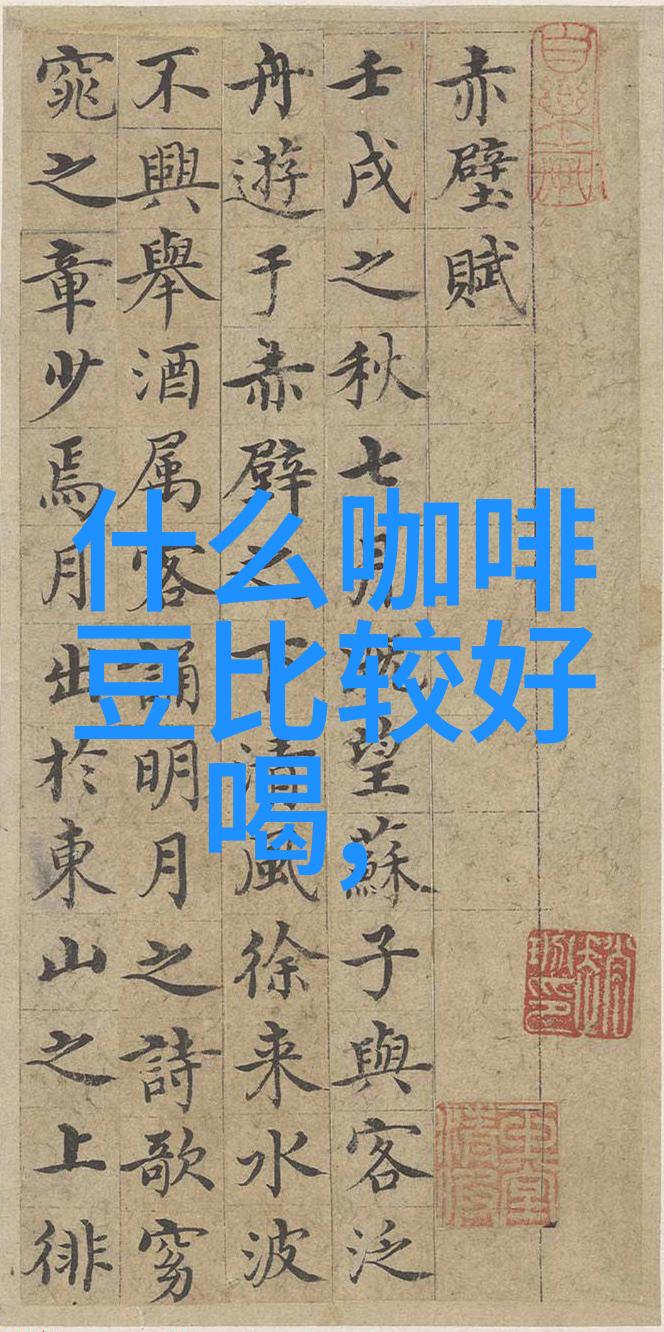 赤壁賦
壬戌之秋七月既望蘇子與客泛
舟遊于赤壁之下清風徐来水波
不興舉酒属客誦明月之詩歌窈
窕之章少焉月出於東山之上徘
什么咖啡
豆比较好
喝,